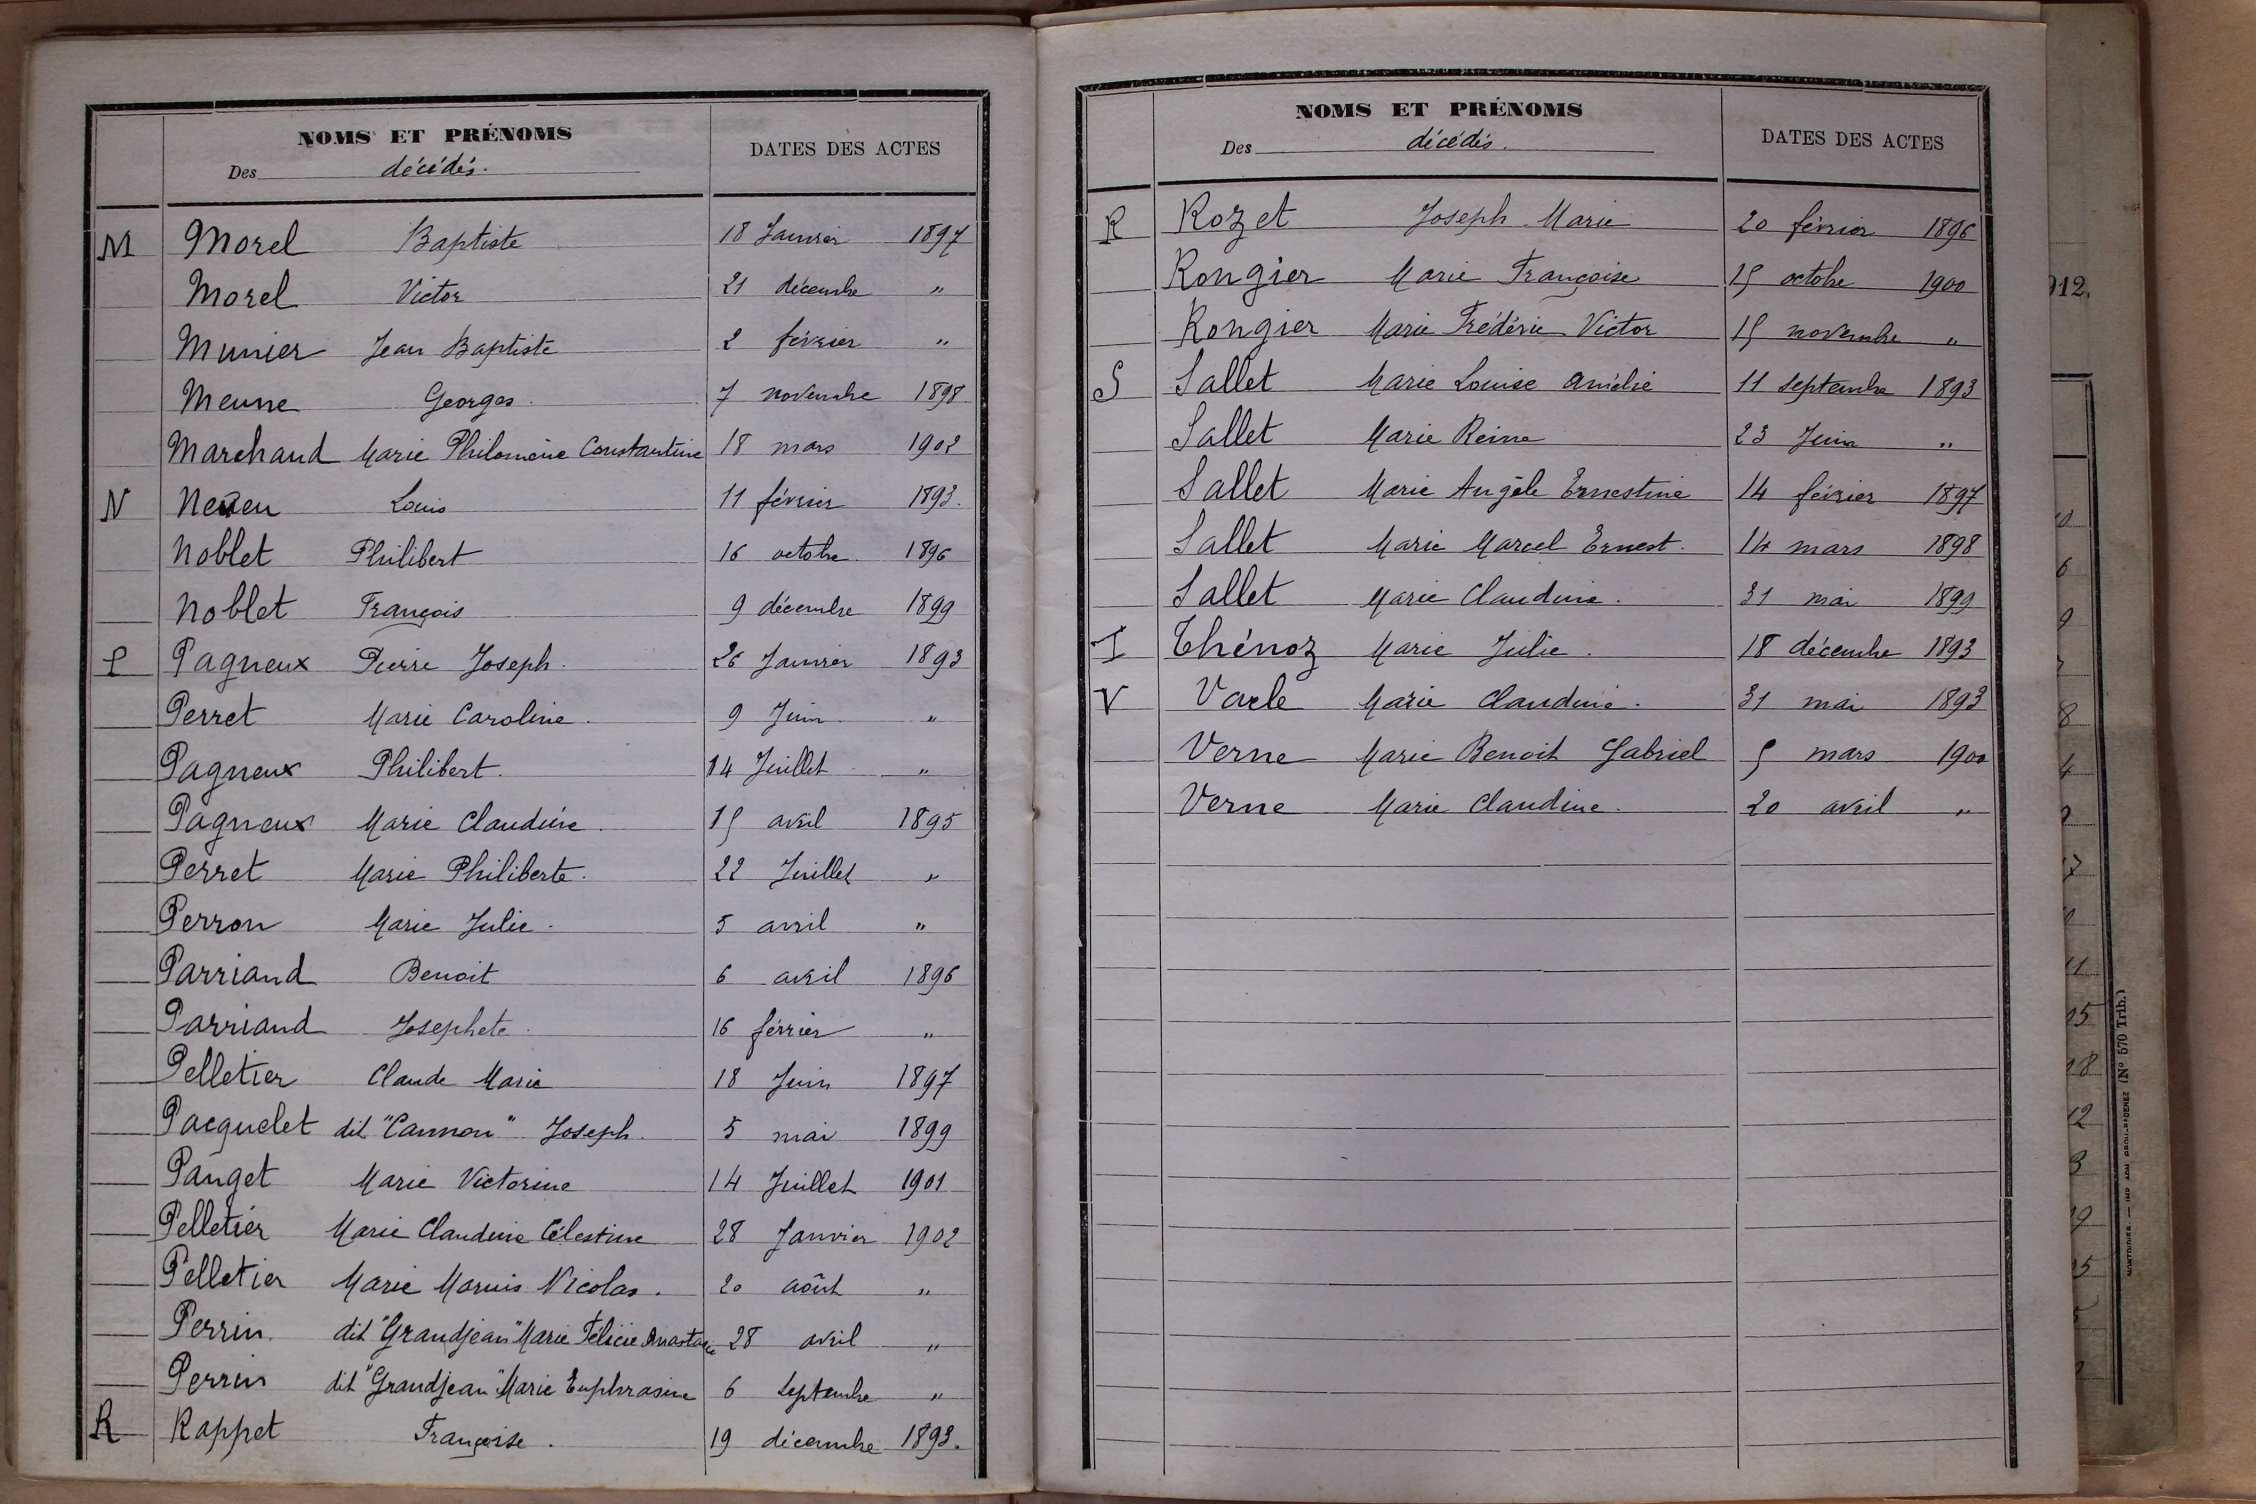 NOMS ET PRÉNOMS
Des décédés.
DATES DES ACTES
M Morel Baptiste 18 Janvier 1897
Morel Victor 21 décembre "
Munier Jean Baptiste 2 février "
Meune Georges. 7 novembre 1898
Marchand Marie Philomène Constantine 18 mars 1902
N Neveu Louis 11 février 1893.
Noblet Philibert 16 octobre 1896
Noblet François 9 décembre 1899
P Pagneux Pierre Joseph. 26 Janvier 1893
Perret Marie Caroline. 9 Juin "
Pagneux Philibert. 14 Juillet "
Pagneux Marie Claudine. 15 avril 1895
Perret Marie Philiberte. 22 Juillet "
Perron Marie Julie. 5 avril "
Parriaud Benoit 6 avril 1896
Parriaud Josephete. 16 février "
Pelletier Claude Marie 18 Juin 1897
Pacquelet dit "Cannon" Joseph. 5 mai 1899
Panget Marie Victorine 14 Juillet 1901
Pelletier Marie Claudine Célestine 28 Janvier 1902
Pelletier Marie Marius Nicolas. 20 août "
Perrin. dit "Grandjean" Marie Félicie Anastasie 28 avril "
Perrin dit "Grandjean" Marie Euphrasine 6 septembre "
R Rappet Françoise. 19 décembre 1893.
NOMS ET PRÉNOMS
Des décédés.
DATES DES ACTES
R Rozet Joseph Marie 20 février 1896
Rongier Marie Françoise 15 octobre 1900
Rongier Marie Frédéric Victor 15 novembre "
S Sallet Marie Louise Amélie 11 septembre 1893
Sallet Marie Reine 23 Juin "
Sallet Marie Angèle Ernestine 14 février 1897
Sallet Marie Marcel Ernest. 14 mars 1898
Sallet Marie Claudine. 31 mai 1899
T Thénoz Marie Julie. 18 décembre 1893
V Vacle Marie Claudine. 31 mai 1893
Verne Marie Benoit Gabriel 5 mars 1900
Verne Marie Claudine. 20 avril "
912.
(N° 570 Trib.)